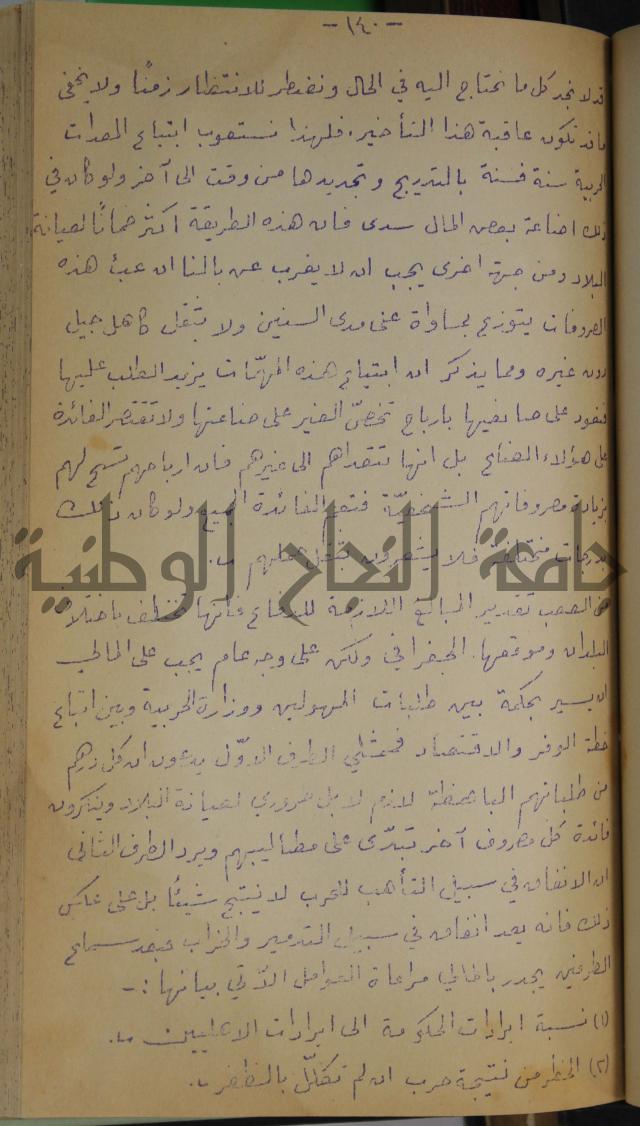 -١٤٠-
قد لا نجد كل ما نحتاج اليه في الحال ونضطر للانتظار زمنًا ولا يخفى
ما قد تكون عاقبة هذا التأخير. فلهذا نستصوب ابتياع المعدات
الحربية سنة فسنة بالتدريج وتجديدها من وقت الى آخر ولو كان في
ذلك اضاعة بعض المال سدى فان هذه الطريقة اكثر ضمانًا لصيانة
البلاد ومن جهة اخرى يجب ان لا يغرب عن بالنا ان عبء هذه
المصروفات يتوزع بمساواة على مدى السنين ولا يثقل كاهل جيل
دون غيره ومما يذكر ان ابتياع هذه المهمّات يزيد الطلب عليها
فتعود على صانعيها بارباح تخصّ الغير على صناعتها ولا تقتصر الفائدة
على هؤلاء الصنّاع بل انها تتعداهم الى غيرهم فان ارباحهم تسمح لهم
بزيادة مصروفاتهم الشخصيّة فتعم الفائدة الجميع ولو كان ذلك
بدرجات مختلفة فلا يشعرون بثقل عملهم .
من الصعب تقدير المبالغ اللازمة للدفاع فانها تختلف باختلاف
البلدان وموقعها الجغرافي ولكن على وجه عام يجب على المالي
ان يسير بحكمة بين طلبات المسؤولين ووزارة الحربية وبين اتباع
خطة الوفر والاقتصاد فممثلي الطرف الاوّل يدعون ان كل درهم
من طلباتهم الباهظة لازم لا بل ضروري لصيانة البلاد وينكرون
فائدة كل مصروف آخر تبدّى على مطاليبهم ويرد الطرف الثاني
ان الانفاق في سبيل التأهب للحرب لا ينتج شيئًا بل على عكس
ذلك فانه يعد انفاق في سبيل التدمير والخراب فبعد سماع
الطرفين يجدر بالمالي مراعاة العوامل الآتي بيانها :-
(١) نسبة ايرادات الحكومة الى ايرادات الاهليين .
(٢) الخطر من نتيجة حرب ان لم تكلّل بالظفر .
جامعة النجاح الوطنية